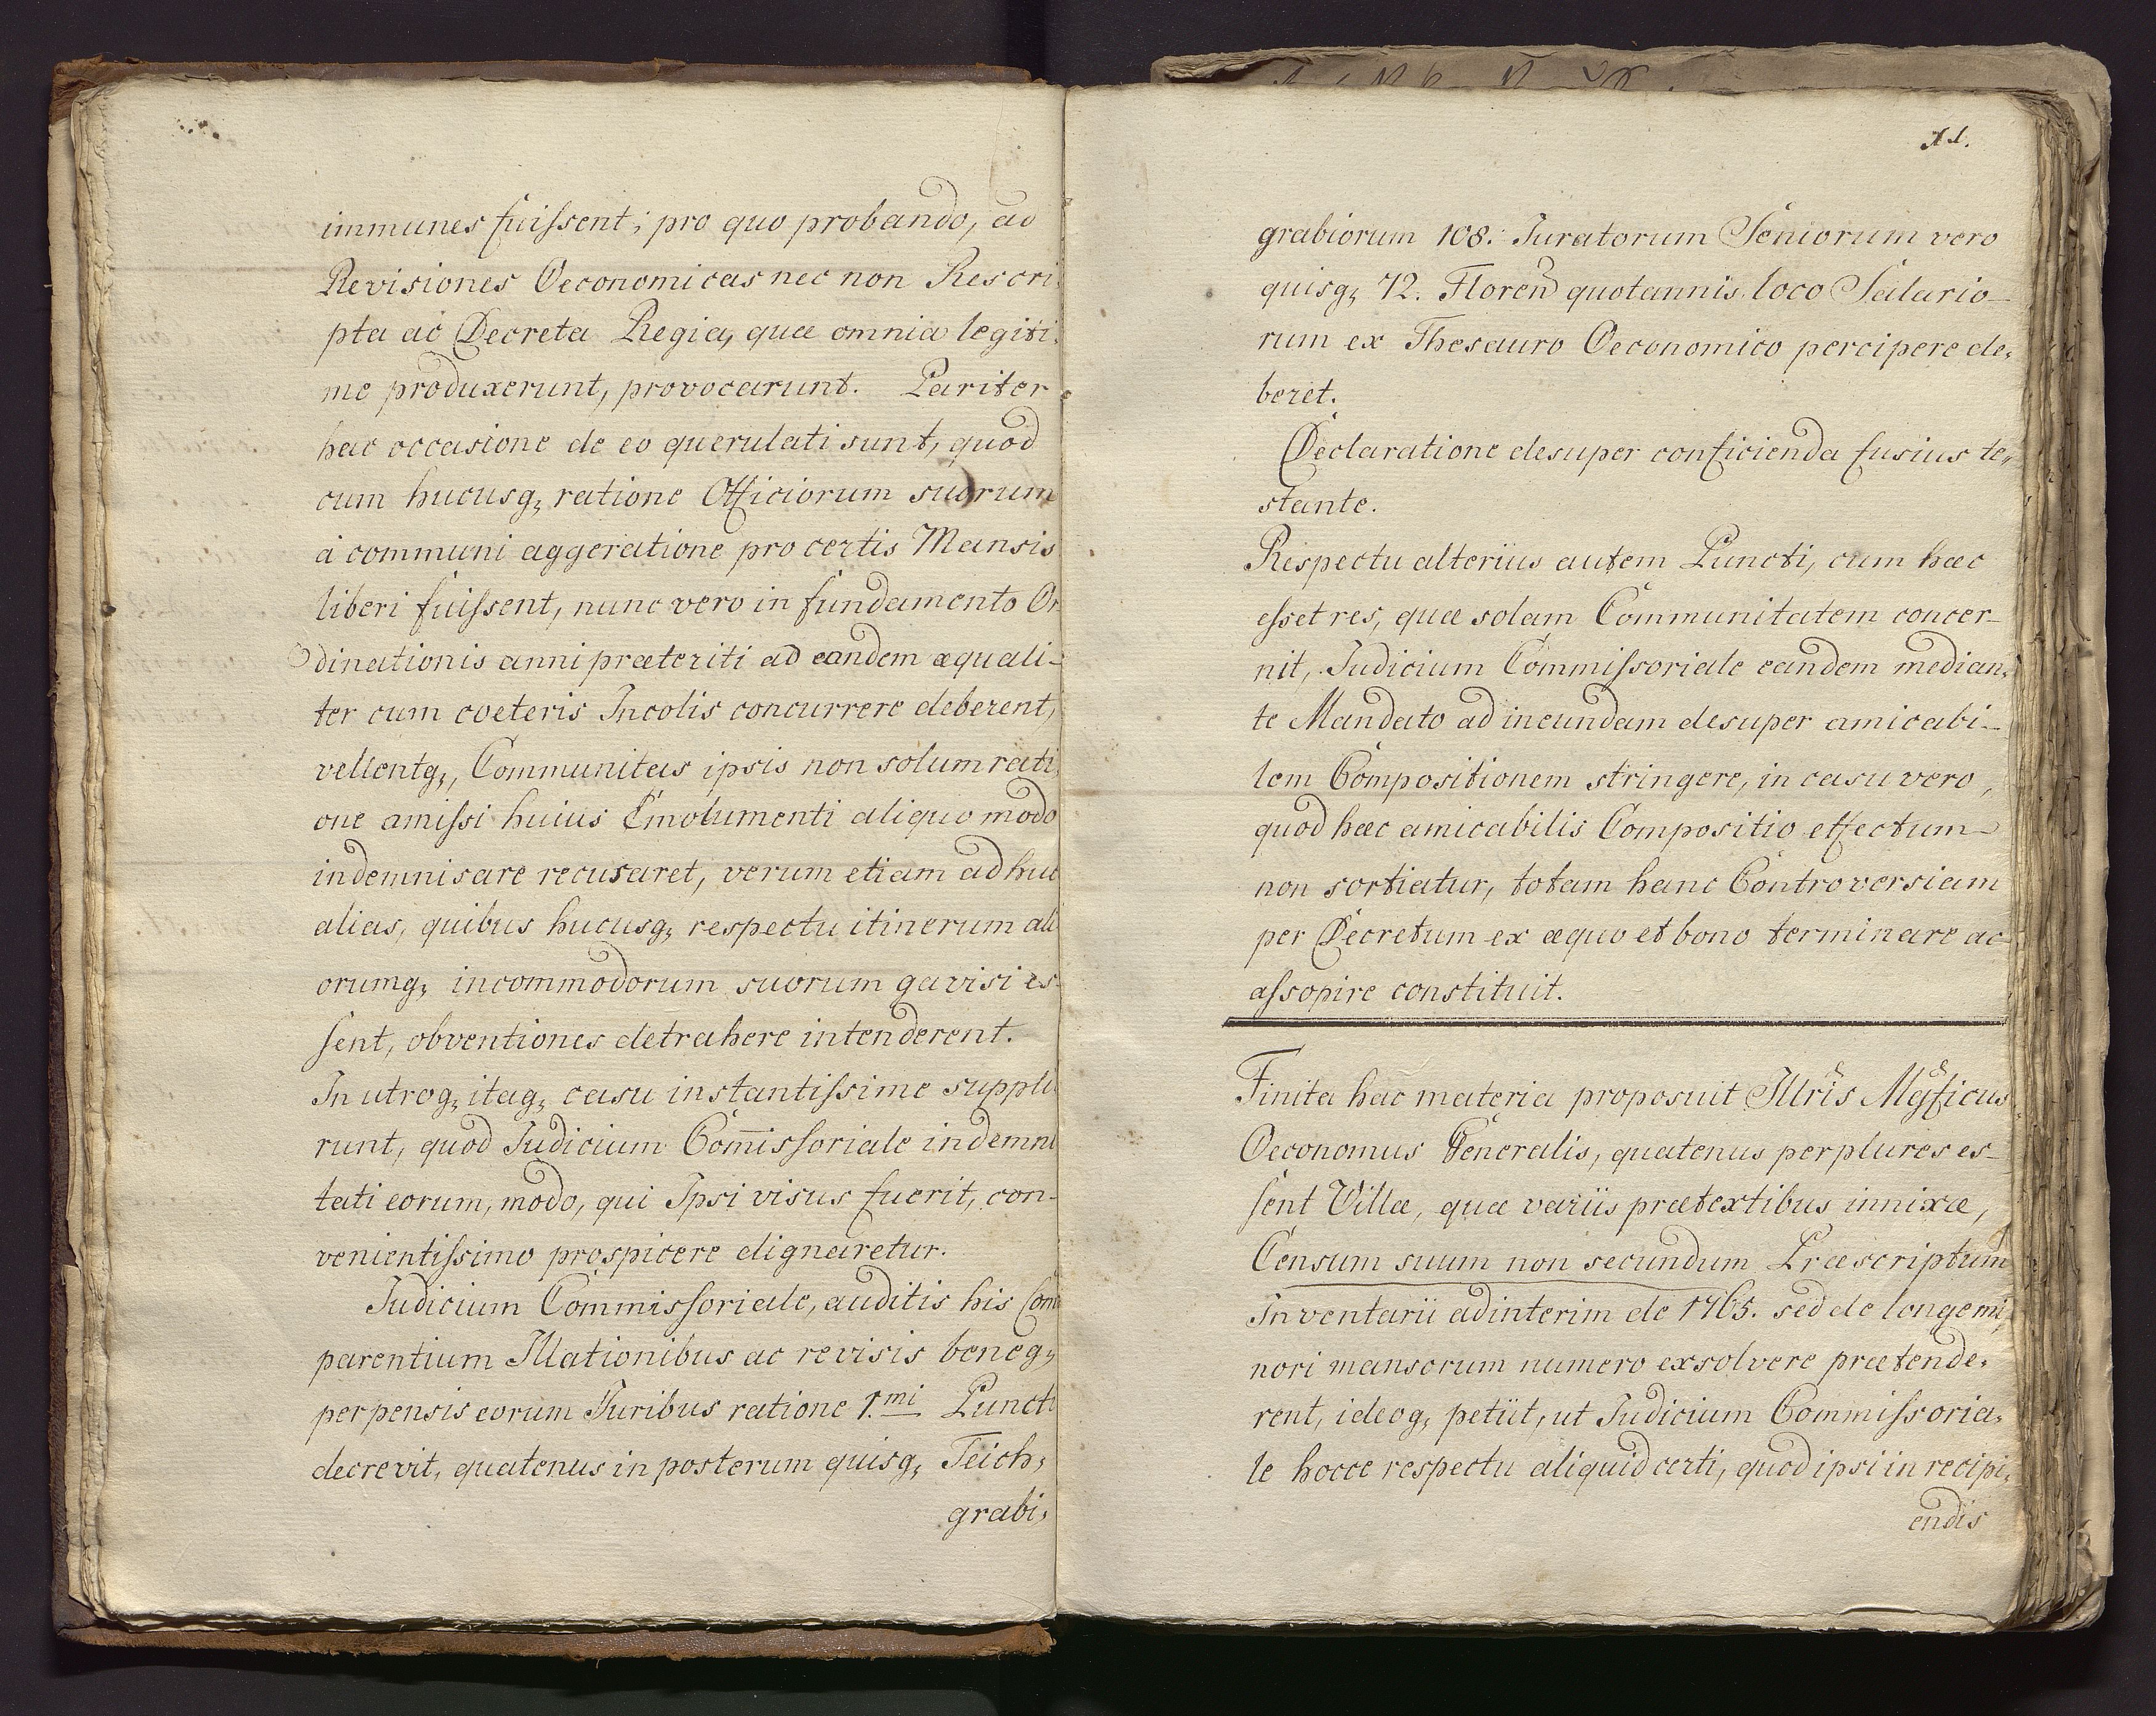 immunes fuissent; pro quo probando, ad
Revisiones Oeconomicas nec non Rescri
pta ac Decreta Regia, quæ omnia legiti,
me produxerunt, provocarunt. Pariter
hac occasione de eo querulati sunt, quod
cum hucusq, ratione Officiorum suorum
à communi aggeratione pro certis Mansis
liberi fuissent, nunc vero in fundamento Or
dinationis anni præteriti ad eandem æquali-
ter cum coeteris Incolis concurrere deberent,
vellentq, Communitas ipsis non solum rati
one amissi huius Emolumenti aliquo modo
indemnisare recusaret, verum etiam adhuc
alias, quibus hucusq, respectu itinerum ali
orumq, incommodorum suorum gavisi es
sent, obventiones detrahere intenderent.
In utroq, itaq, casu instantissime suppli
runt, quod Judicium Com̄issoriale indemni
tati eorum, modo, qui Ipsi visus fuerit, con-
venientissimo prospicere dignaretur.
Judicium Commissoriale, auditis his Com
parentium Illationibus ac revisis beneq,
perpensis eorum Juribus ratione 1.mi Puncti
decrevit, quatenus in posterum quisq, Teich,
grabi,
11.
grabiorum 108. Juratorum Seniorum vero
quisq, 72. Floren quotannis loco Salario-
rum ex Thesauro Oeconomico percipere de,
beret.
Declaratione desuper conficienda fusius te,,
stante.
Respectu alterius autem Puncti, cum hæc
esset res, quæ solam Communitatem concer-
nit, Judicium Commissoriale eandem median,
te Mandato ad ineundam desuper amicabi-
lem Compositionem stringere, in casu vero,
quod hæc amicabilis Compositio effectum
non sortiatur, totam hanc Controversiam
per Decretum ex æquo et bono terminare ac
assopire constituit.
Finita hac materia proposuit Illris Mgficus
Oeconomus Generalis, quatenus perplures es-
sent Villæ, quæ variis prætextibus innixæ,
Censum suum non secundum Præscriptum
Inventarii adinterim de 1765. sed de longe mi,
nori mansorum numero exsolvere prætende,
rent, ideoq, petiit, ut Judicium Commissoria,
le hocce respectu aliquid certi, quod ipsi in recipi,
endis